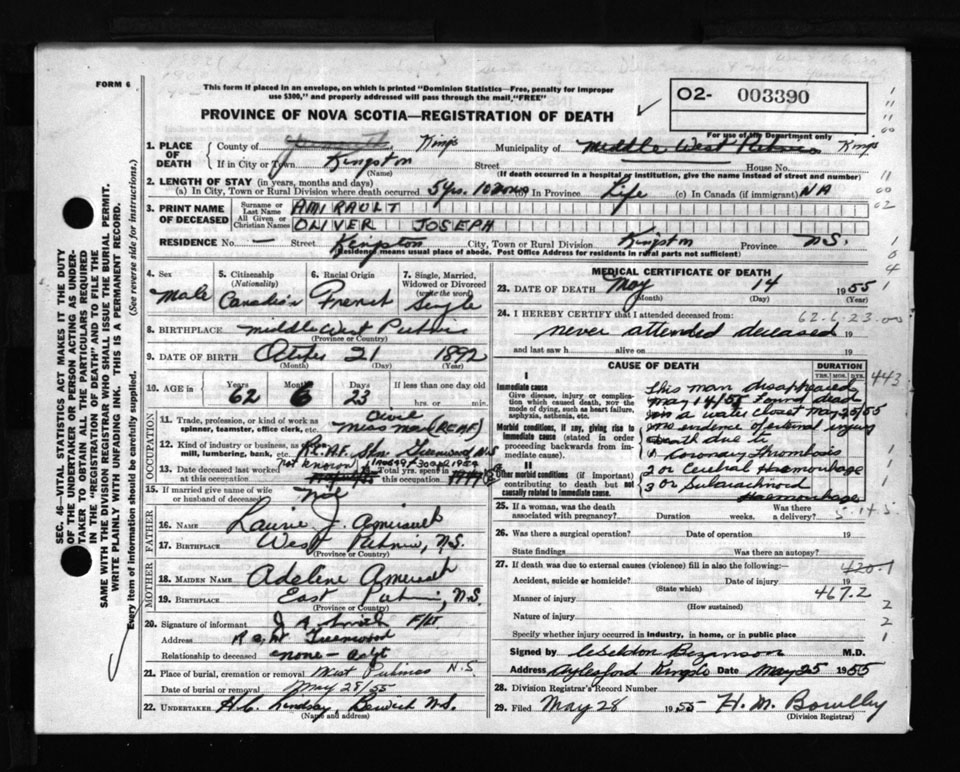 FORM 6
This form if placed in an envelope, on which is printed "Dominion Statistics—Free, penalty for improper
use $300," and properly addressed will pass through the mail, "FREE"
02- 003390
PROVINCE OF NOVA SCOTIA—REGISTRATION OF DEATH
For use of the Department only
1. PLACE OF DEATH
County of Kings Municipality of Middle West Pubnico Kings
If in City or Town Kingston Street House No.
(Name) (If death occurred in a hospital or institution, give the name instead of street and number)
2. LENGTH OF STAY (in years, months and days)
(a) In City, Town or Rural Division where death occurred 5 yrs. 10 (b) In Province Life (c) In Canada (if immigrant) NA
3. PRINT NAME OF DECEASED
Surname or Last Name AMIRAULT
All Given or Christian Names OLIVER JOSEPH
RESIDENCE No. — Street Kingston City, Town or Rural Division Kingston Province N.S.
(Residence means usual place of abode. Post Office Address for residents in rural parts not sufficient)
4. Sex Male
5. Citizenship (Nationality) Canadian
6. Racial Origin French
7. Single, Married, Widowed or Divorced (write the word) Single
8. BIRTHPLACE Middle West Pubnico
(Province or Country)
9. DATE OF BIRTH 21 1892
(Month) (Day) (Year)
10. AGE in Years 62 Months 6 Days 23 If less than one day old
hrs. or min.
OCCUPATION
11. Trade, profession, or kind of work as spinner, teamster, office clerk, etc. (RCAF)
12. Kind of industry or business, as mill, lumbering, bank, etc. R.C.A.F. Stn Greenwood N.S.
13. Date deceased last worked at this occupation not known Total yrs. spent in this occupation
15. If married give name of wife or husband of deceased Nil
FATHER
16. Name Laurie J. Amirault
17. Birthplace West Pubnico, N.S.
(Province or Country)
MOTHER
18. MAIDEN NAME Adeline Amirault
19. BIRTHPLACE East Pubnico, N.S.
(Province or Country)
20. Signature of informant F/Lt
Address Greenwood
Relationship to deceased none - adjt
21. Place of burial, cremation or removal West Pubnico N.S.
Date of burial or removal May 28/55
22. UNDERTAKER H.C. Lindsay, Berwick N.S.
(Name and address)
MEDICAL CERTIFICATE OF DEATH
23. DATE OF DEATH May 14 1955
(Month) (Day) (Year)
24. I HEREBY CERTIFY that I attended deceased from:
62-6-23-00
never attended deceased 19
and last saw h alive on 19
CAUSE OF DEATH
DURATION
YRS. MOS. DYS.
443
I
Immediate cause
Give disease, injury or complication which caused death, NOT the mode of dying, such as heart failure, asphyxia, asthenia, etc.
Morbid conditions, if any, giving rise to immediate cause (stated in order proceeding backwards from immediate cause).
II
Other morbid conditions (if important) contributing to death but not causally related to immediate cause.
This man disappeared
May 14/55 found dead
in a water closet May 25/55
no evidence of external injury
death due to
1 Coronary Thrombosis
2 or Cerebral Haemorrhage
3 or Subarachnoid
Haemorrhage
25. If a woman, was the death associated with pregnancy? Duration weeks. Was there a delivery?
26. Was there a surgical operation? Date of operation 19
State findings Was there an autopsy?
27. If death was due to external causes (violence) fill in also the following: 420-1
Accident, suicide or homicide? Date of injury 19
(State which)
467.2
Manner of injury
(How sustained)
Nature of injury
Specify whether injury occurred in industry, in home, or in public place
Signed by M.D.
Address Aylesford Kings Co Date May 25 1955
28. Division Registrar's Record Number
29. Filed May 28 1955 H. M.
(Division Registrar)
SEC. 46—VITAL STATISTICS ACT MAKES IT THE DUTY
OF THE UNDERTAKER OR PERSON ACTING AS UNDERTAKER TO OBTAIN ALL THE PARTICULARS REQUIRED
IN THE "REGISTRATION OF DEATH" AND TO FILE THE
SAME WITH THE DIVISION REGISTRAR WHO SHALL ISSUE THE BURIAL PERMIT.
WRITE PLAINLY WITH UNFADING INK. THIS IS A PERMANENT RECORD.
Every item of information should be carefully supplied. (See reverse side for instructions.)